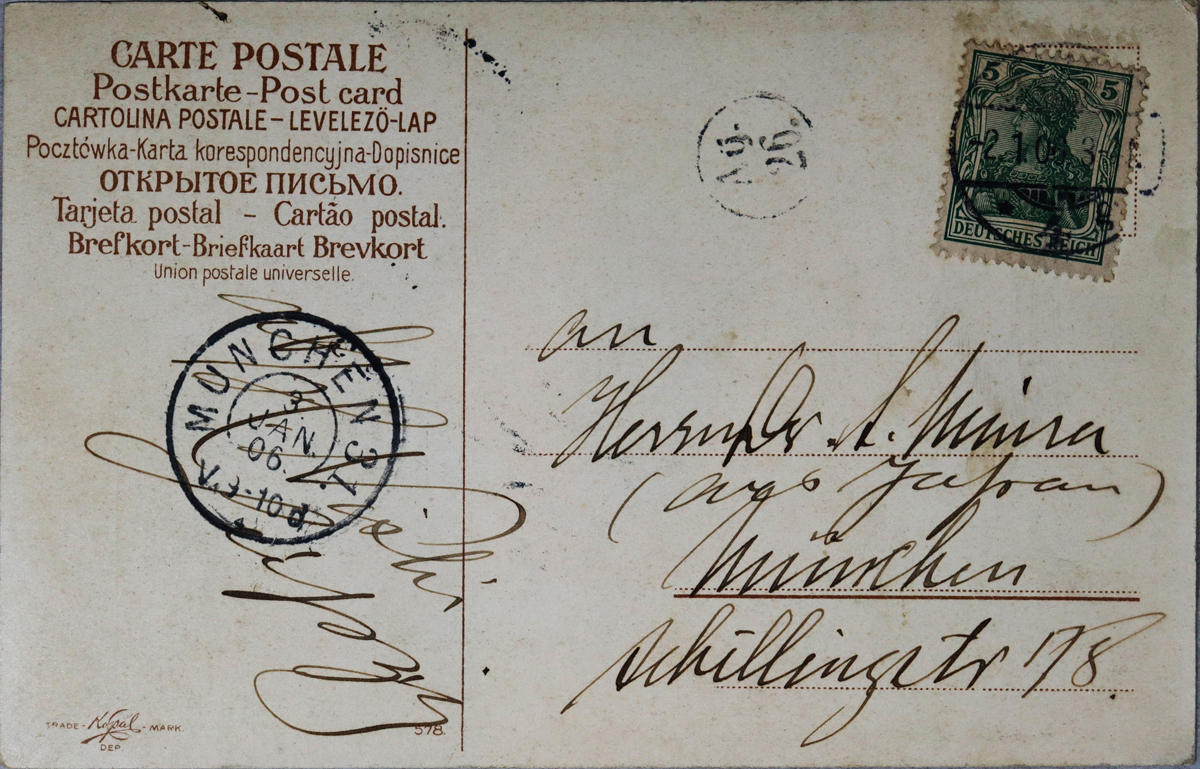 CARTE POSTALE
Postkarte-Post card
CARTOLINA POSTALE-LEVELEZÖ-LAP
Pocztówka-Karta korespondencyjna-Dopisnice
ОТКРЫТОЕ ПИСЬМО.
Tarjeta postal - Cartão postal.
Brefkort-Briefkaart Brevkort
Union postale universelle.
5 5
DEUTSCHES REICH
MÜNCHEN 31.
3
JAN.
06.
V. 9-10
an
Herrn Dr. A. Miura
(aus Japan)
München
Schillingstr 17/8.
TRADE - - MARK.
DEP.
578.